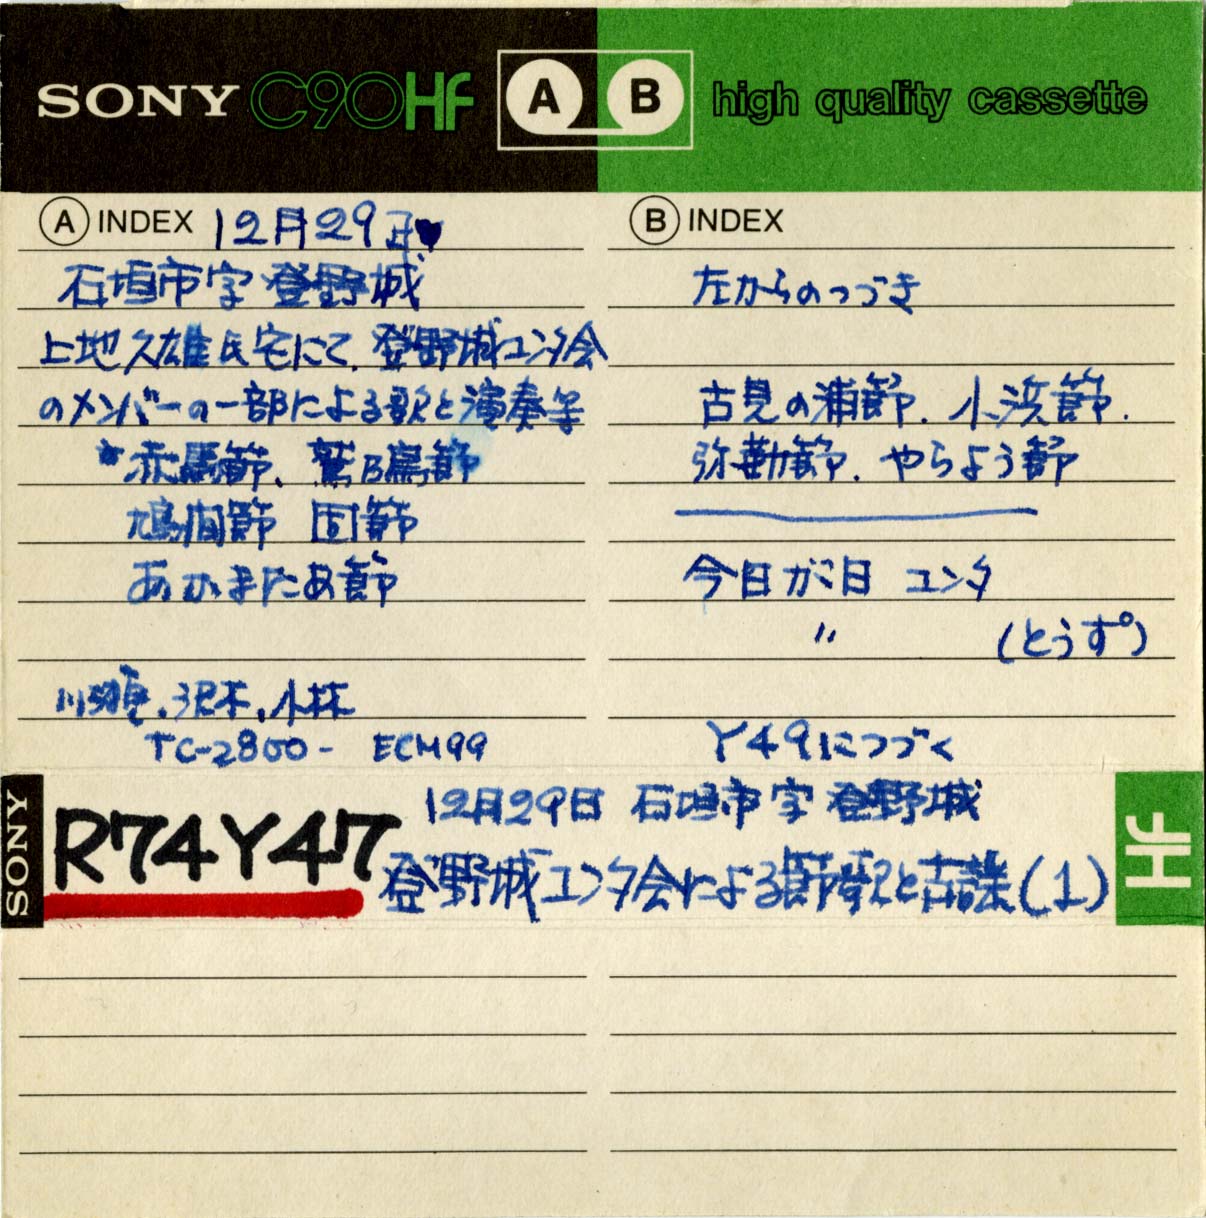 SONY C90HF A B high quality cassette
A INDEX 12月29日
石垣市字登野城
上地久雄氏宅にて、登野城ユンタ会
のメンバーの一部による歌と演奏等
赤馬節、鷲ぬ鳥節
鳩間節 国節
あかまたあ節
川瀬、沢木、小林
TC-2800- ECM99
B INDEX
左からのつづき
古見の浦節、小浜節、
弥勒節、やらよう節
今日が日 ユンタ
〃 (とうす゜)
Y49につづく
SONY
R74Y47
12月29日 石垣市字登野城
登野城ユンタ会による節歌と古謡(1)
HF